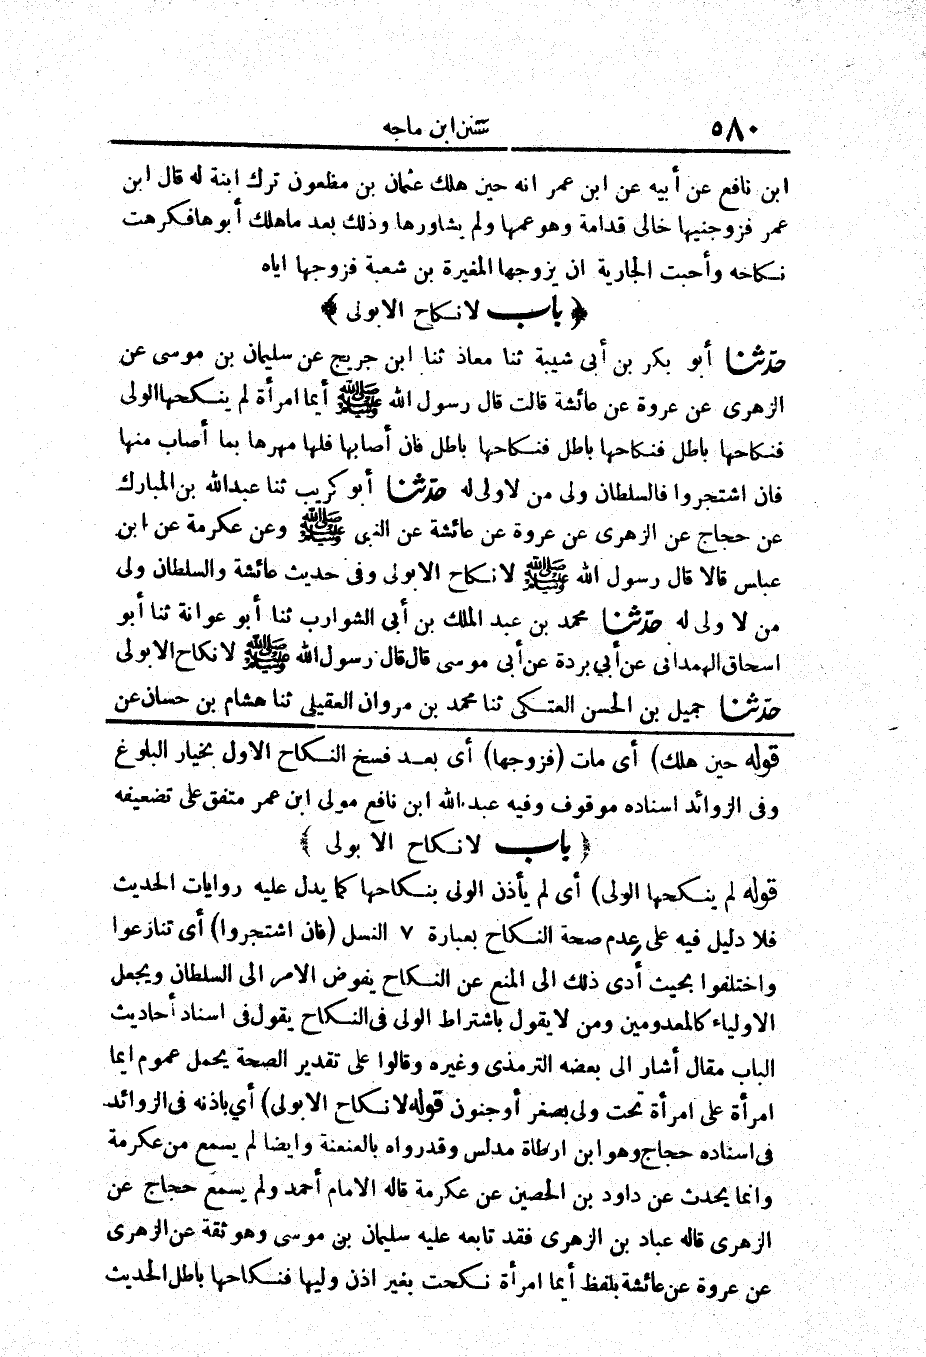 ٥٨٠ سنن ابن ماجه
ابن نافع عن أبيه عن ابن عمر انه حين هلك عثمان بن مظعون ترك ابنة له قال ابن
عمر فزوجنيها خالى قدامة وهو عمها ولم يشاورها وذلك بعد ما هلك أبوها فكرهت
نكاحه وأحبت الجارية ان يزوجها المغيرة بن شعبة فزوجها اياه
﴿ باب لا نكاح الا بولى ﴾
حدثنا أبو بكر بن أبى شيبة ثنا معاذ ثنا ابن جريج عن سليمان بن موسى عن
الزهرى عن عروة عن عائشة قالت قال رسول الله ﷺ أيما امرأة لم ينكحها الولى
فنكاحها باطل فنكاحها باطل فنكاحها باطل فان أصابها فلها مهرها بما أصاب منها
فان اشتجروا فالسلطان ولى من لا ولى له حدثنا أبو كريب ثنا عبد الله بن المبارك
عن حجاج عن الزهرى عن عروة عن عائشة عن النبى ﷺ وعن عكرمة عن ابن
عباس قالا قال رسول الله ﷺ لا نكاح الا بولى وفى حديث عائشة والسلطان ولى
من لا ولى له حدثنا محمد بن عبد الملك بن أبى الشوارب ثنا أبو عوانة ثنا أبو
اسحاق الهمدانى عن أبي بردة عن أبى موسى قال قال رسول الله ﷺ لا نكاح الا بولى
حدثنا جميل بن الحسن العتكى ثنا محمد بن مروان العقيلى ثنا هشام بن حسان عن
قوله حين هلك) أى مات (فزوجها) أى بعد فسخ النكاح الاول بخيار البلوغ
وفى الزوائد اسناده موقوف وفيه عبد الله ابن نافع مولى ابن عمر متفق على تضعيفه
﴿ باب لا نكاح الا بولى ﴾
قوله لم ينكحها الولى) أى لم يأذن الولى بنكاحها كما يدل عليه روايات الحديث
فلا دليل فيه على عدم صحة النكاح بعبارة ٧ النسل (فان اشتجروا) أى تنازعوا
واختلفوا بحيث أدى ذلك الى المنع عن النكاح يفوض الامر الى السلطان ويجعل
الاولياء كالمعدومين ومن لا يقول باشتراط الولى فى النكاح يقول فى اسناد أحاديث
الباب مقال أشار الى بعضه الترمذى وغيره وقالوا على تقدير الصحة يحمل عموم ايما
امرأة على امرأة تحت ولى بصغر أو جنون قوله لا نكاح الا بولى) أي باذنه فى الزوائد
فى اسناده حجاج وهو ابن ارطاة مدلس وقد رواه بالعنعنة وايضا لم يسمع من عكرمة
وانما يحدث عن داود بن الحصين عن عكرمة قاله الامام أحمد ولم يسمع حجاج عن
الزهرى قاله عباد بن الزهرى فقد تابعه عليه سليمان بن موسى وهو ثقة عن الزهرى
عن عروة عن عائشة بلفظ أيما امرأة نكحت بغير اذن وليها فنكاحها باطل الحديث